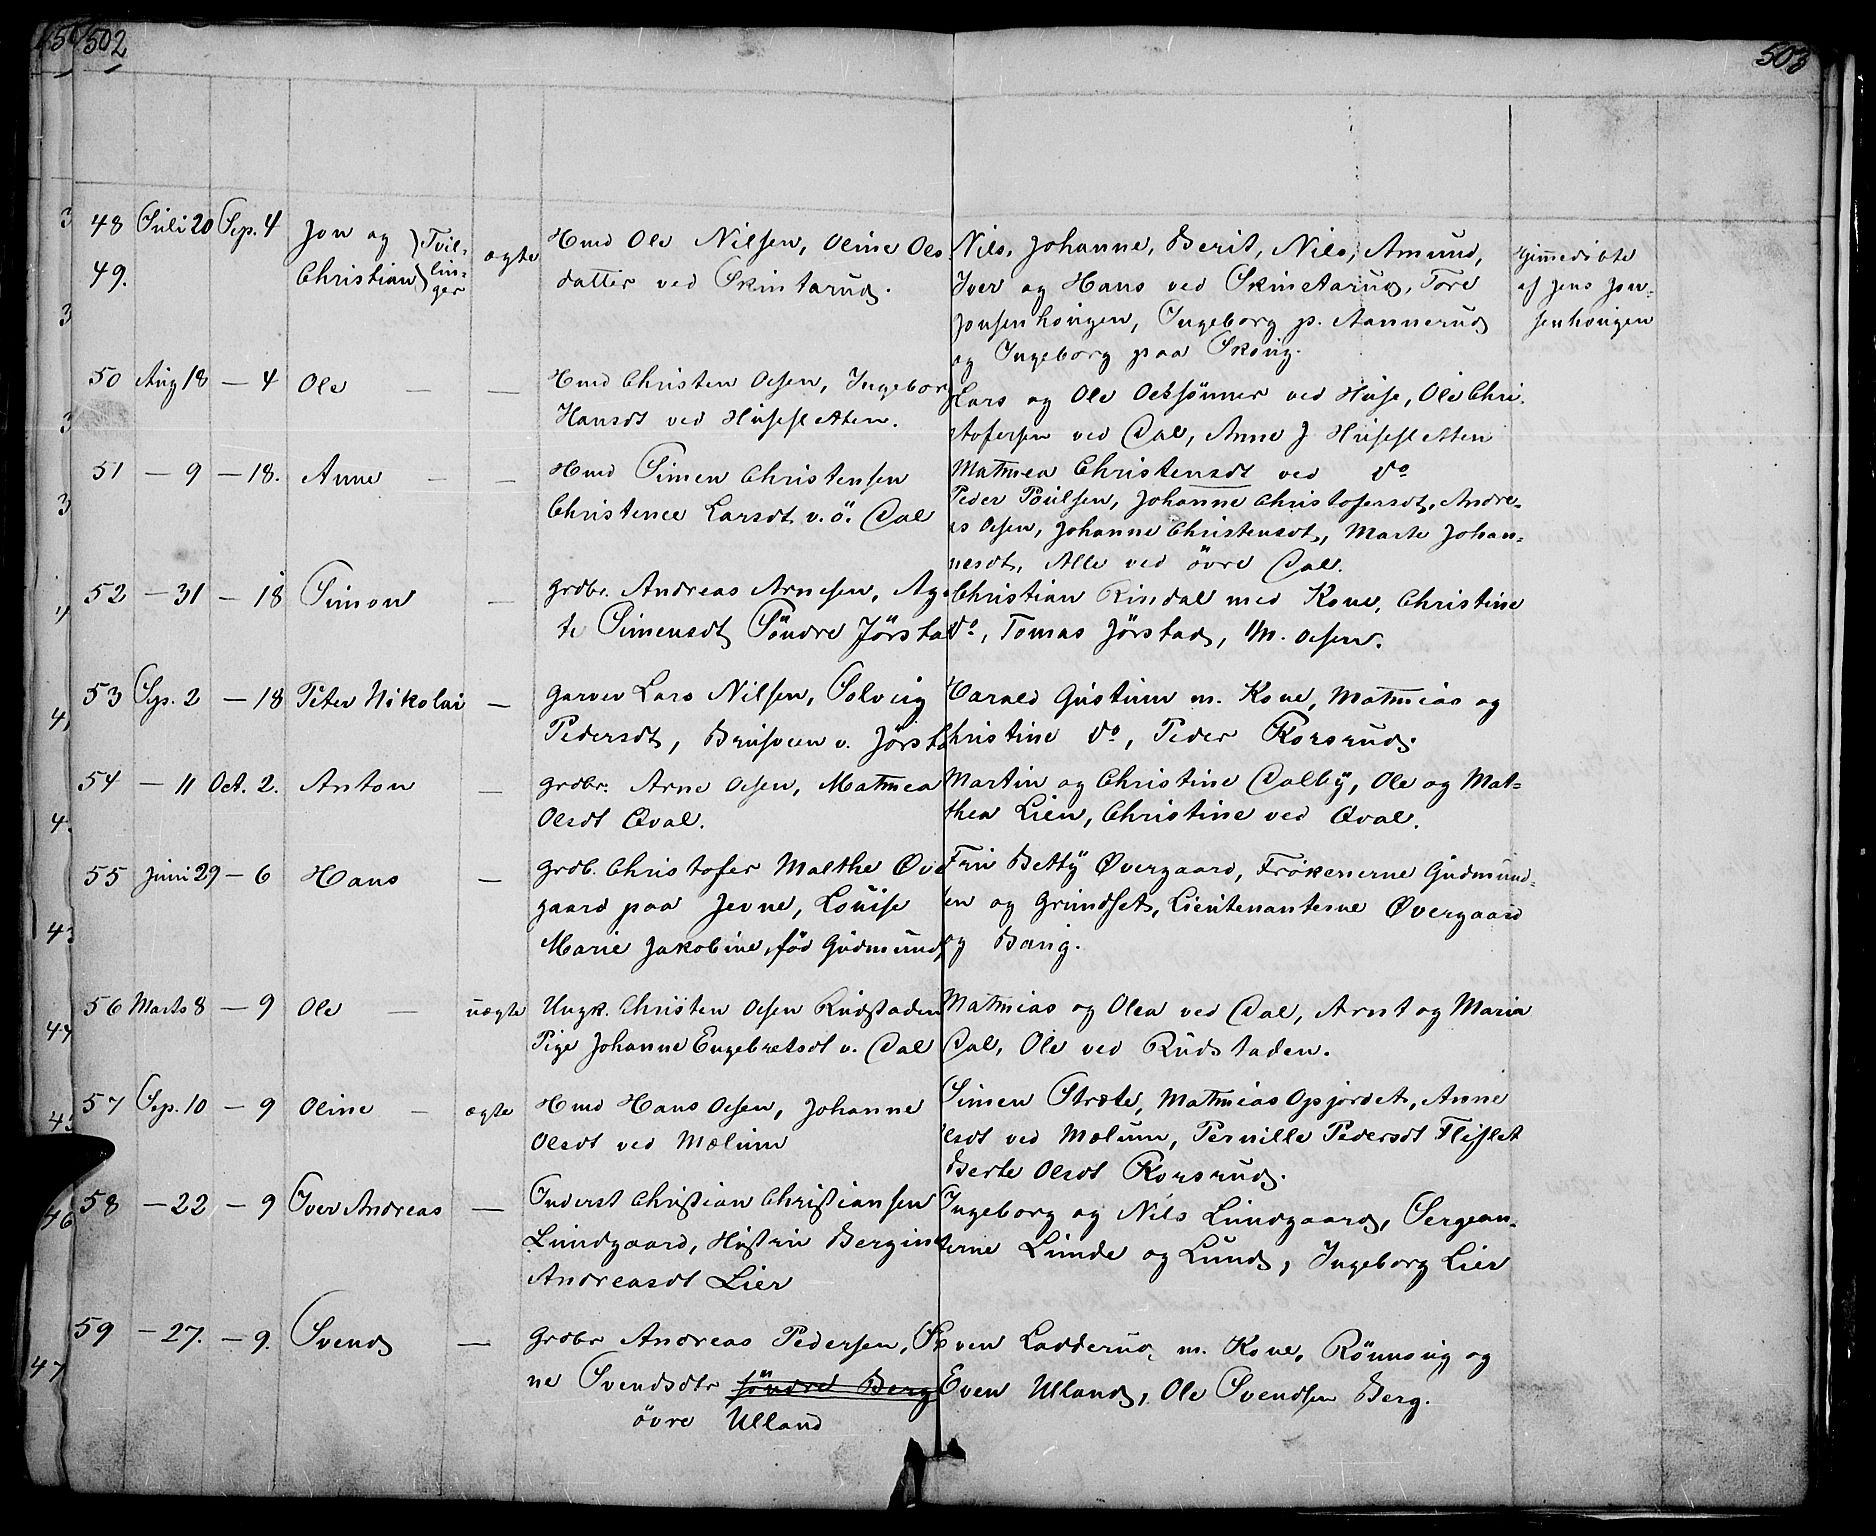 502
503
48 Juli 20 Sep. 4 Jon og Tvil- ægte Hmd Ole Nilsen, Oline Ols- Nils, Johanne, Berit, Nils, Amund, Hjemedøbte
49. Christian lin- datter ved Skintarud. Iver og Hans ved Skinetarud, Tore af Jens Jon-
ger Jonsenhougen, Ingeborg p. Aannerud senhougen
og Ingeborg paa Skoug.
50 Aug 18 — 4 Ole — — Hmd Christen Olsen, Ingeborg Lars og Ole Olssönner ved Huse, Ole Chri-
Hansdt ved Husesletten. stofersen ved Dal, Anne J Husesletten
51 — 9 — 18. Anne — — Hmd Simen Christensen Mathea Christensdt ved do
Christence Larsdt v. ö. Dal Peder Poulsen, Johanne Christofersdt, Andre-
as Olsen, Johanne Christensdt, Marte Johan-
nesdt, Alle ved övre Dal.
52 — 31 — 18 Simon — Grdbr. Andreas Arnesen, Aga- Christian Rindal med Kone, Christine
te Simensdt Söndre Jörstad do, Tomas Jörstad, M. Olsen.
53 Sep. 2 — 18 Peter Nikolai — Garver Lars Nilsen, Solveig Harald Gustum m. Kone, Mathias og
Pedersdt, Brusveen v. Jörsta Christine do, Peder Korsrud.
54 — 11 Oct. 2. Anton — Grdbr. Arne Olsen, Mathea Martin og Christine Dalby, Ole og Mat-
Olsdt Qval. thea Lien, Christine ved Qval.
55 Juni 29 — 6 Hans — Grdb. Christofer Malthe Øve Fru Betty Øvergaard, Frökenerne Gudmund-
gaard paa Jevne, Louise sen og Grundset, Lieutenanterne Øvergaard
Marie Jakobine, föd Gudmunds og Bang.
56 Marts 8 — 9 Ole — uægte Ungk. Christen Olsen Rudstaden Mathias og Olea ved Dal, Arnt og Maria
Pige Johanne Engebretsdt v. Dal Dal, Ole ved Rudstaden.
57 Sep. 10 — 9 Oline — ægte Hmd Hans Olsen, Johanne Simen Stræte, Mathias Opjordet, Anne
Olsdt ved Mælum Olsdt ved Mælum, Pernille Pedersdt Fliflet
Berte Olsdt Korsrud.
58 — 22 — 9 Iver Andreas — Inderst Christian Christiansen Ingeborg og Nils Lundgaard, Sergean-
Lundgaard, Hustru Bergine terne Lunde og Lund, Ingeborg Lier
Andreasdt Lier
59 — 27. — 9. Svend — Grdbr Andreas Pedersen, Even Ladderud m. Kone, Rönnoug og
ne Svendsdtr söndre Berg Even Ulland, Ole Svendsen Berg.
övre Ulland